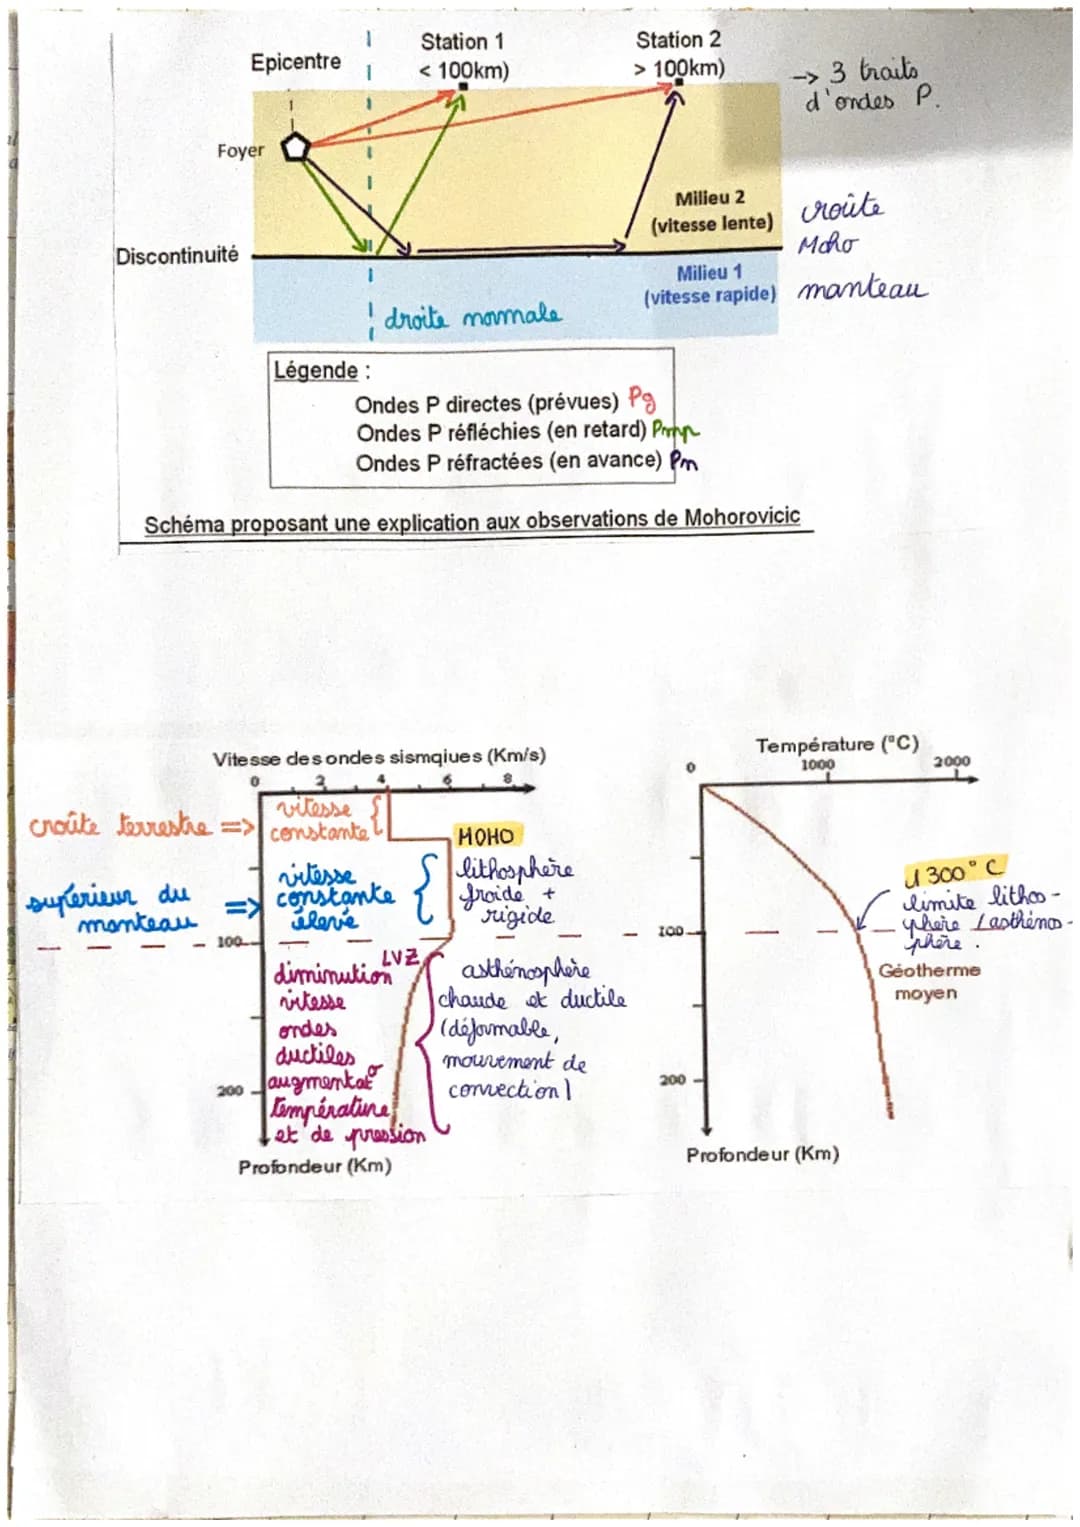 Station 1
Station 2
Epicentre
< 100km)
> 100km)
-> 3 traits
d'ondes P.
Foyer
Milieu 2
(vitesse lente)
croûte
Discontinuité
Moho
Milieu 1
(vitesse rapide)
manteau
droite normale
Légende :
Ondes P directes (prévues) Pg
Ondes P réfléchies (en retard) Pmp
Ondes P réfractées (en avance) Pn
Schéma proposant une explication aux observations de Mohorovicic
Vitesse des ondes sismqiues (Km/s)
0 2 4 6 8
croûte terrestre =>
vitesse
constante
MOHO
supérieur du
manteau =>
vitesse
constante
élevé
lithosphère
froide +
rigide
100
LVZ
diminution
vitesse
ondes
ductiles
augmentat°
température
et de pression
asthénosphère
chaude et ductile
(déformable,
mouvement de
convection)
200
Profondeur (Km)
Température (°C)
0 1000 2000
1300°C
limite litho-
sphère / asthéno-
sphère.
100
Géotherme
moyen
200
Profondeur (Km)